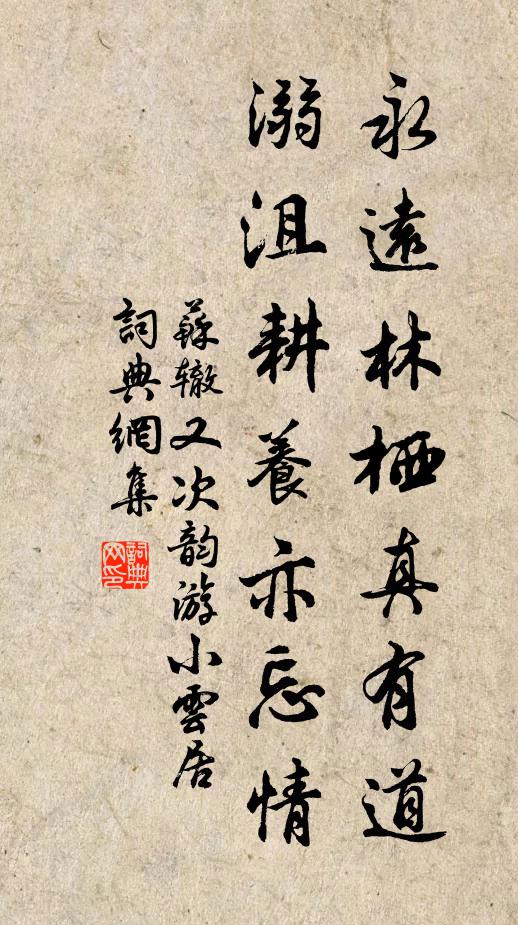 永遠林栖真有道
溺沮耕養亦忘情
蘇辙又次韵游小雲居
詞典網集
詞典网印